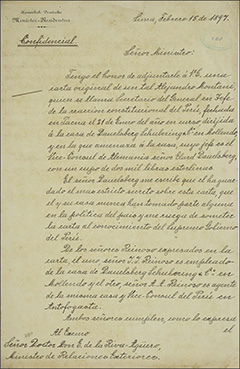 Kaiserlich Deutsche
Minister-Residentur
Lima, Febrero 15 de 1897.
Confidencial
Señor Ministro:
Tengo el honor de adjuntarle á V.E. una
carta original de un tal Alejandro Montani,
quien se llama Secretario del General en Jefe
de la reaccion constitucional del Perú, fechada
en Tacna el 31 de Enero del año en curso dirijida
á la casa de Dauelsberg Schubering & Cª en Mollendo
y en la que amenaza á la casa, cuyo jefe es el
Vice-Consul de Alemania señor Eduard Dauelsberg,
con un cupo de dos mil libras esterlinas.
El señor Dauelsberg me escribe que el ha guar-
dado el mas estricto secreto sobre esta carta, que
él y su casa nunca han tomado parte alguna
en la politica del pais y me ruega de some-
ter la carta al conocimiento del Supremo Gobierno
del Perú.
De los señores Reinoso expresados en la
carta, el uno señor J. J. Reinoso es empleado
de la casa de Dauelsberg Schubering & Cª en
Mollendo y el otro, señor A. A. Reinoso es agente
de la misma casa y Vice-Consul del Perú en
Antofagasta.
Ambos señores cumplen, como lo expresa
el
Al Exmo
Señor Doctor Don E. de la Riva-Agüero,
Ministro de Relaciones Exteriores.